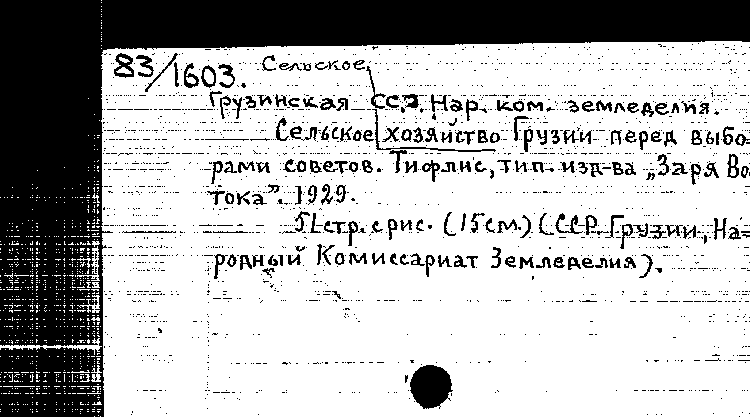 83/1603. Сельское
Грузинская ССР. Нар. ком. земледелия.
Сельское хозяйство Грузии перед выбо-
рами советов. Тифлис, тип. изд-ва „Заря Во
тока”. 1929.
51 стр. с рис. (15см.) (ССР. Грузии, На-
родный Комиссариат Земледелия).